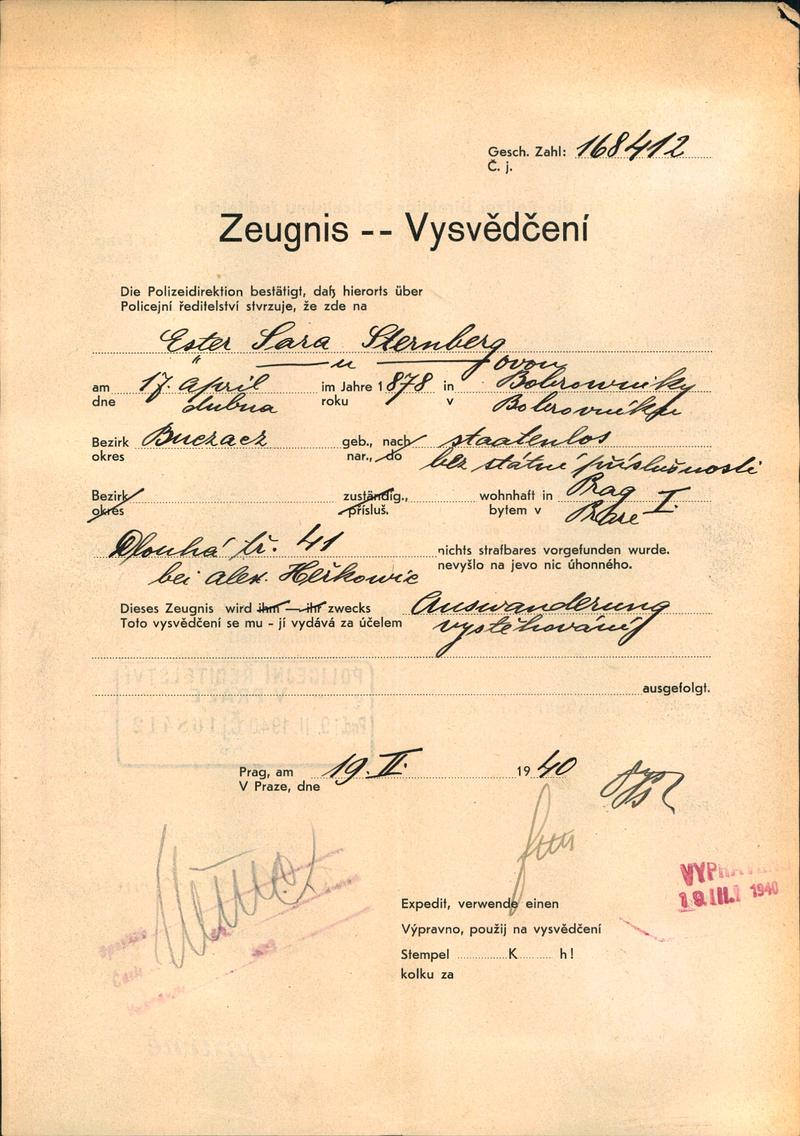 Gesch. Zahl: 168412
Č. j.
Zeugnis -- Vysvědčení
Die Polizeidirektion bestätigt, daß hierorts über
Policejní ředitelství stvrzuje, že zde na
Ester Sara Sternberg
" — " — ovou
am 17. April im Jahre 1878 in Bobrowniky
dne dubna roku v Bobrovníku
Bezirk Buczacz geb., nach staatenlos
okres nar., do bez státní příslušnosti
Bezirk zuständig., wohnhaft in Prag I.
okres přísluš. bytem v Praze
Dlouhá tř. 41 nichts strafbares vorgefunden wurde.
bei Alex. Herkowic nevyšlo na jevo nic úhonného.
Dieses Zeugnis wird ihm — ihr zwecks Auswanderung
Toto vysvědčení se mu - jí vydává za účelem vystěhování
ausgefolgt.
POLICEJNÍ ŘEDITELSTVÍ
V PRAZE
1940 168412
Prag, am 19. II. 1940
V Praze, dne
VYPRAVENO
19.III. 1940
Expedit, verwende einen
Výpravno, použij na vysvědčení
Stempel K h!
kolku za